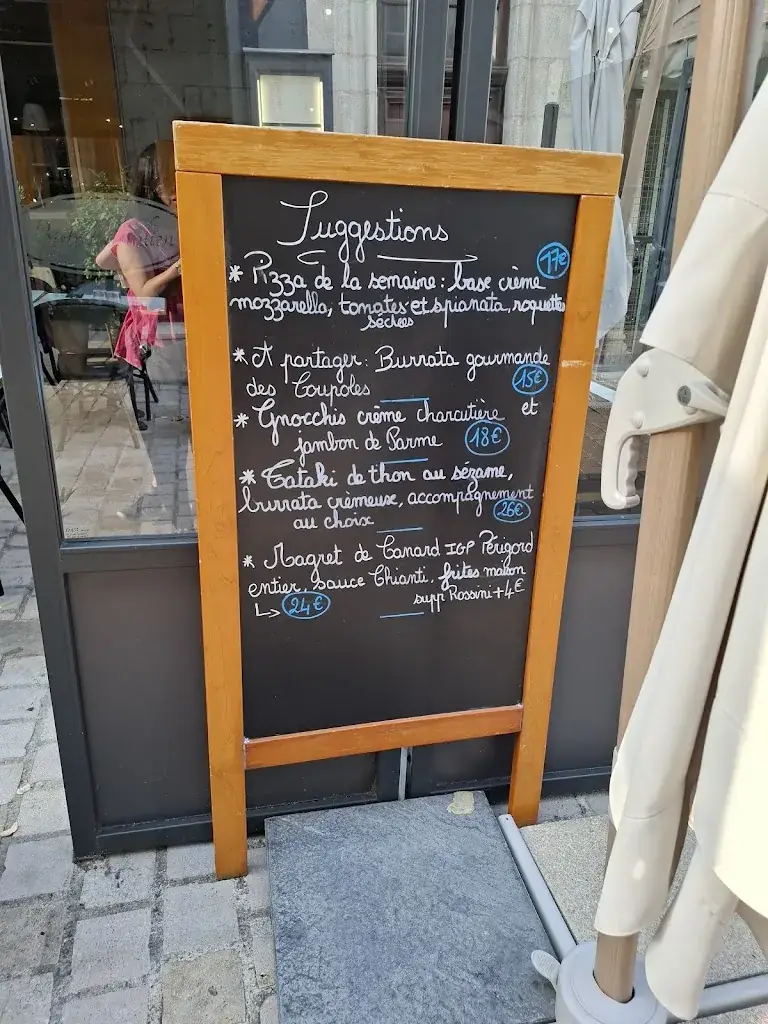 Suggestions
17€
* Pizza de la semaine : base crème
mozzarella, tomates et spianata, roquette
séchées
* A partager : Burrata gourmande
des Coupoles
15€
* Gnocchis crème charcutière et
jambon de Parme 18€
* Tataki de thon au sézame,
burrata crèmeuse, accompagnement
au choix 26€
* Magret de Canard IGP Périgord
entier, sauce Chianti, frites maison
supp Rossini + 4€
↳ 24€